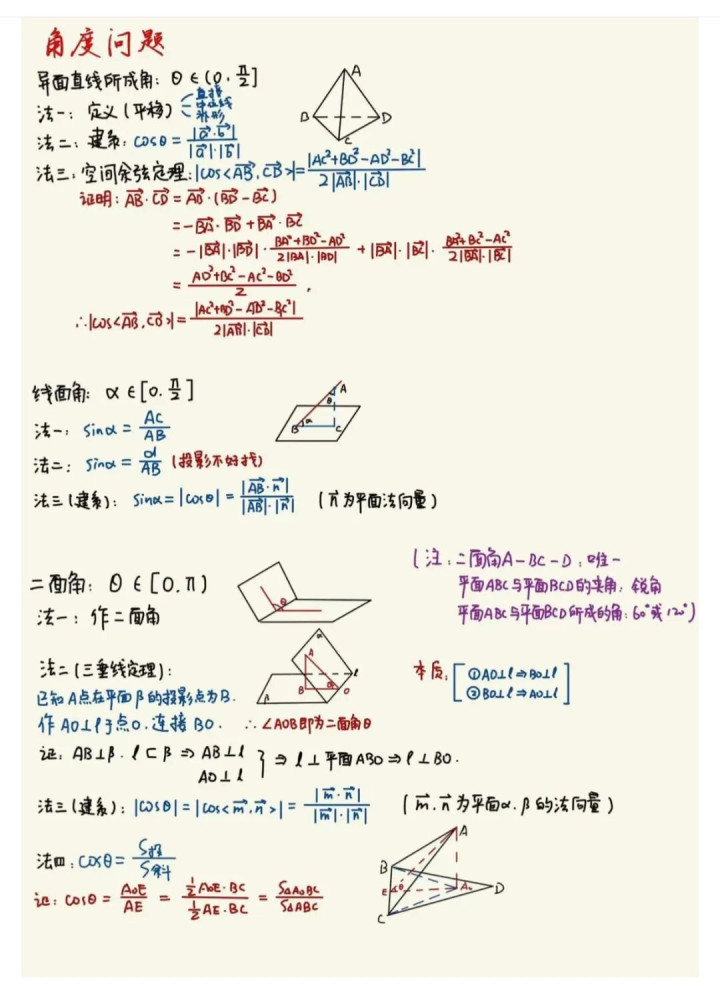 角度问题
异面直线所成角: θ∈(0,π/2]
法一: 定义(平移) 直接 中位线 补形
法二: 建系: cosθ = |a⃗·b⃗| / |a⃗|·|b⃗|
法三: 空间余弦定理: |cos<AB⃗,CD⃗>| = |AC²+BD²-AD²-BC²| / 2|AB⃗|·|CD⃗|
A
B
C
D
证明: AB⃗·CD⃗ = AB⃗·(BD⃗-BC⃗)
= -BA⃗·BD⃗ + BA⃗·BC⃗
= -|BA⃗|·|BD⃗|· (BA²+BD²-AD²) / 2|BA|·|BD| + |BA⃗|·|BC⃗|· (BA²+BC²-AC²) / 2|BA⃗|·|BC⃗|
= (AD²+BC²-AC²-BD²) / 2 .
∴|cos<AB⃗,CD⃗>| = |AC²+BD²-AD²-BC²| / 2|AB⃗|·|CD⃗|
线面角: α∈[0,π/2]
法一: sinα = AC/AB
法二: sinα = d/AB (投影不好找)
法三(建系): sinα = |cosθ| = |AB⃗·n⃗| / |AB⃗|·|n⃗| (n⃗为平面法向量)
A
θ
B
α
C
二面角: θ∈[0,π)
法一: 作二面角
θ
(注: 二面角A-BC-D: 唯一
平面ABC与平面BCD的夹角: 锐角
平面ABC与平面BCD所成的角: 60°或120°)
法二(三垂线定理):
已知A点在平面β的投影点为B.
作AO⊥l于点O.连接BO. ∴∠AOB即为二面角θ
α
A
l
B
θ
O
β
本质: ①AO⊥l⇒BO⊥l
②BO⊥l⇒AO⊥l
证: AB⊥β. l⊂β ⇒ AB⊥l
AO⊥l } ⇒ l⊥平面ABO ⇒ l⊥BO.
法三(建系): |cosθ| = |cos<m⃗,n⃗>| = |m⃗·n⃗| / |m⃗|·|n⃗| (m⃗,n⃗为平面α,β的法向量)
法四: cosθ = S投/S斜
证: cosθ = A₀E/AE = ½A₀E·BC / ½AE·BC = S△A₀BC / S△ABC
A
B
E
θ
A₀
D
C